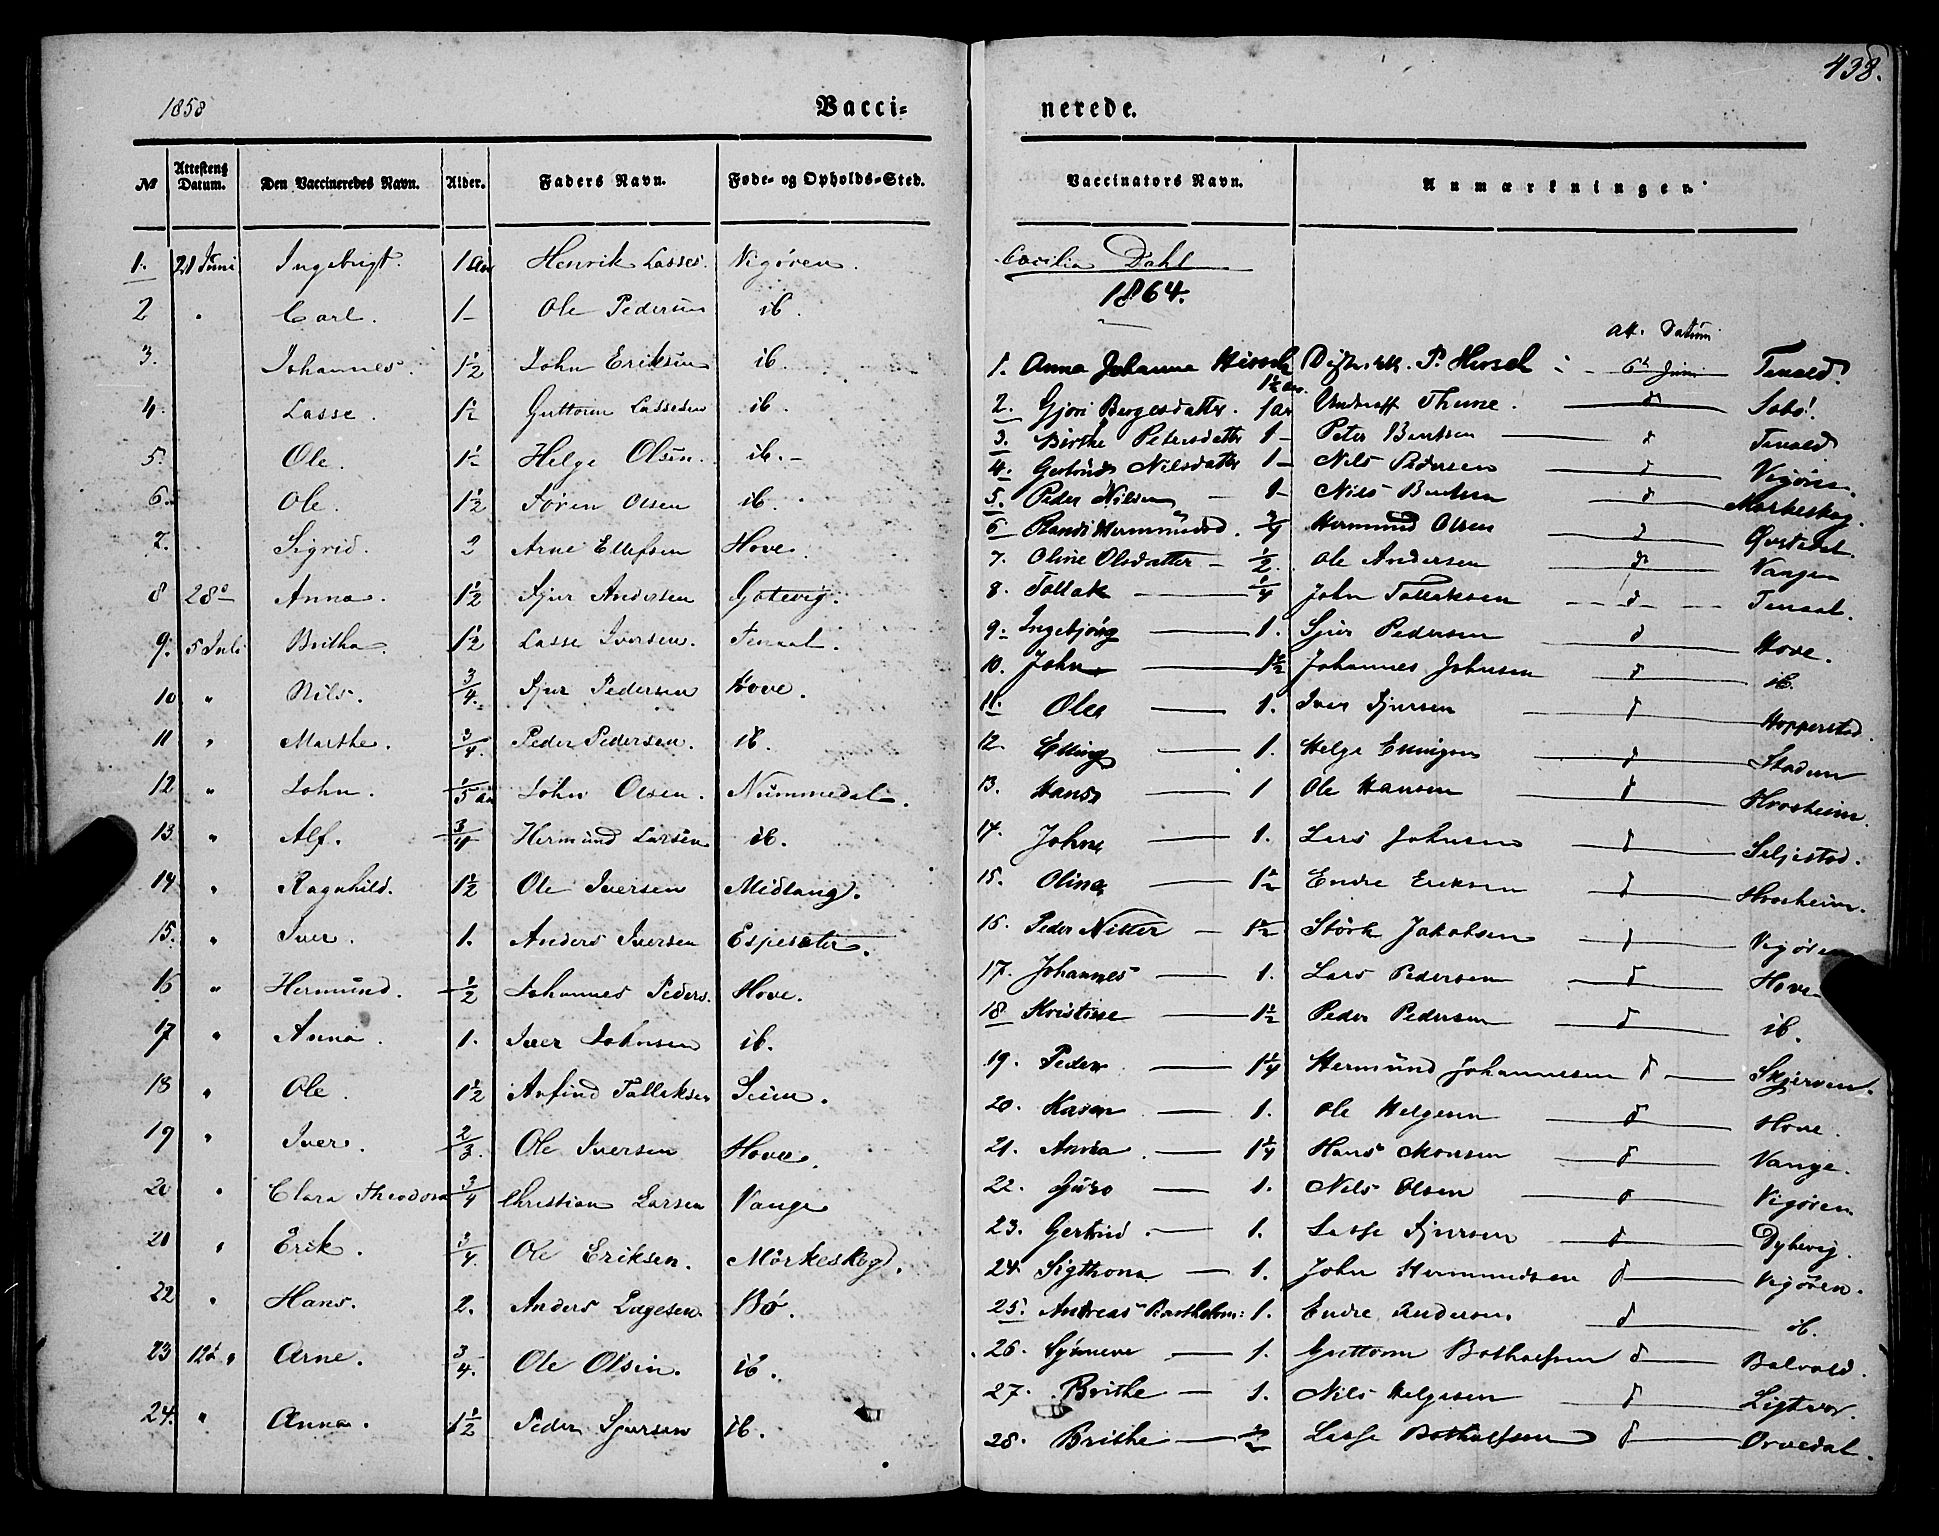 438.
1858
Vacci=
nerede.
№ Attestens Datum. Den Vaccineredes Navn. Alder. Faders Navn. Føde- og Opholds-Sted.
1. 21 Juni Ingebrigt. 1 aar Henrik Lasses. Vigøren.
2 " Carl. 1 – Ole Pedersen ib.
3. Johannes. 1½ John Eriksen ib.
4. Lasse. 1½ Guttorm Lassesen ib.
5. Ole. 1½ Helge Olsen. ib. –
6. Ole. 1½ Søren Olsen ib.
7. Sigrid. 2 Arne Ellefsen Hove.
8 28 Anna. 1½ Sjur Andersen Gotevig.
9. 5 Juli Britha. 1½ Lasse Iversen. Tenaal.
10 " Nils. ¾. Sjur Pedersen Hove.
11 " Marthe. ¾. Peder Pedersen. ib.
12 " John. 1/5 aar John Olsen. Nummedal.
13. " Alf. ¾ Hermund Larsen ib.
14 " Ragnhild. 1½ Ole Iversen Midlang.
15. " Iver. 1. Anders Iversen Espesæter.
16 " Hermund. ½ Johannes Peders. Hove.
17 " Anna. 1. Iver Johnsen ib.
18 " Ole. 1½ Anfind Tollaksen Seim.
19 " Iver. ⅔. Ole Iversen Hove.
20 " Clara Theodora ¾ Christian Larsen Vange
21 " Erik. ¾. Ole Eriksen. Mørkeskog.
22 " Hans. 2. Anders Lagesen. Bø.
23 12 " Arne. ¾. Ole Olsen. ib.
24. " Anna. 1½ Peder Sjursen ib.
Vaccinators Navn. Anmærkninger.
Cæcilia Dahl
1864.
Att. Datum
1. Anna Johanna Hirsch 1½ aar. P. Hirsch 6 Juni Tenold.
2. Gjøri Børgesdatter. 1 ar Thune. d Sobø.
3. Birthe Petersdatter 1 – Peter Bentsen d Tenold
4. Gertrud Nilsdatter 1 – Nils Pedersen d Vigøren.
5. Peder Nilsen – 1 – Nils Bentsen d Mørkeskog.
6 Randi Hermundsd. ¾ Hermund Olsen d Ovredal.
7. Oline Olsdatter – ½. Ole Andersen d Vangen
8. Tollak ¼ John Tollaksen d Tenaal.
9. Ingebjørg 1. Sjur Pedersen d Hove.
10. John 1½ Johannes Johnsen d ib.
11. Ole 1. Iver Sjursen d Hopperstad.
12. Elling 1. Helge Ellingsen d Stadum
13. Hans 1 Ole Hansen d Hovsheim.
14. John 1. Lars Johnsen d Seljestad.
15. Olina 1½ Endre Eriksen d Hovsheim.
16. Peder Nitter – 1½ Størk Jakobsen d Vigøren
17. Johannes 1. Lars Pedersen d Hove
18 Kristine 1½ Peder Pedersen d ib.
19. Peder 1¼ Hermund Johannesen d Skjerven.
20. Karen 1. Ole Helgesen d Hove.
21. Anna 1¼ Hans Monsen d Vange.
22. Guro 1. Nils Olsen d Vigøren
23. Gertrud. 1. Lasse Sjursen d Dyhevig.
24. Sigthona 1. John Hermundsen d Vigøren.
25. Andreas Bartholom: 1. Endre Andersen d ib.
26. Synneve 1. Guttorm Botholfsen d Bolvold.
27. Brithe 1. Nils Helgesen d Ligtvor.
28. Brithe Lasse Botholfsen d Orvedal.